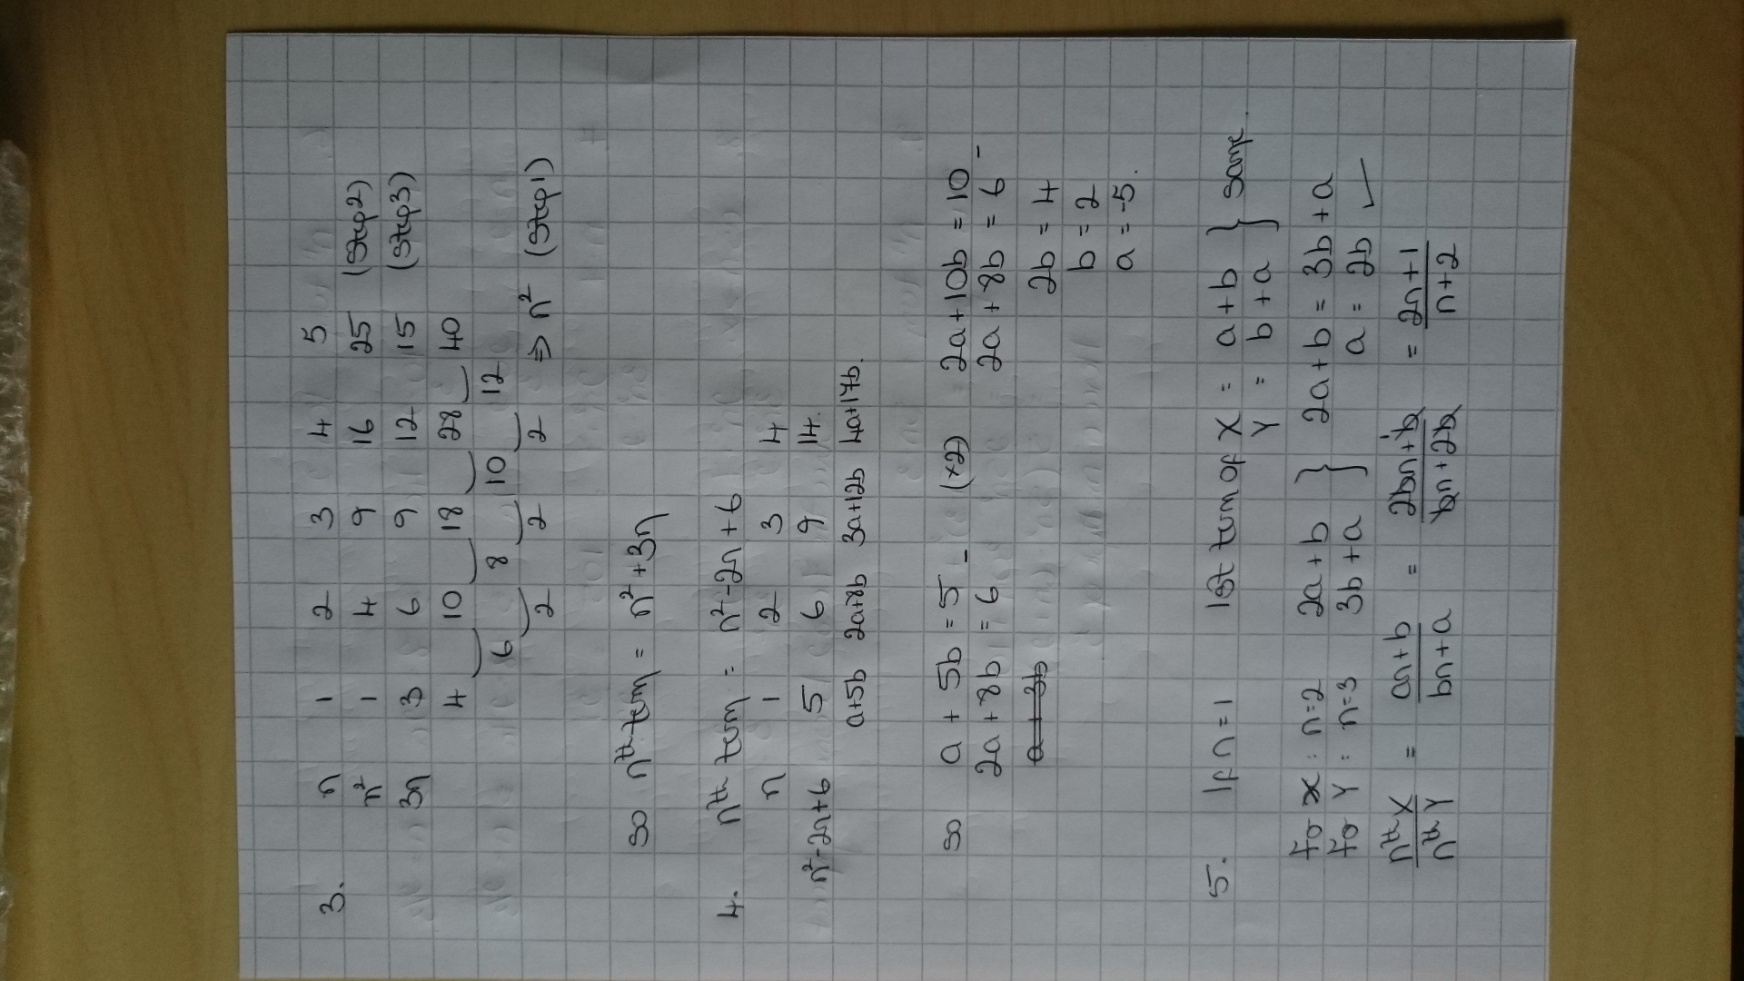 3. n 1 2 3 4 5
n² 1 4 9 16 25 (Step2)
3n 3 6 9 12 15 (Step3)
4 10 18 28 40
6 8 10 12
2 2 2 ⇒ n² (Step1)
so nth term = n²+3n
4. nth term = n²-2n+6
n 1 2 3 4
n²-2n+6 5 6 9 14.
a+5b 2a+8b 3a+12b 4a+17b.
so a + 5b = 5 - (×2) 2a+10b = 10
2a + 8b = 6 2a + 8b = 6 -
a + 3b 2b = 4
b = 2
a = -5.
5. If n=1 1st term of X = a+b } same.
Y = b+a
For X : n=2 2a+b } 2a+b = 3b+a
For Y : n=3 3b+a a = 2b ✓
nth X / nth Y = an+b / bn+a = 2bn+b / bn+2b = 2n+1 / n+2